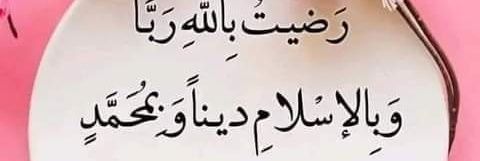 رَضيتُ بِاللَّهِ رَبَّاً
وَبِالإسْلامِ ديناً وَبِمُحَمَّدٍ